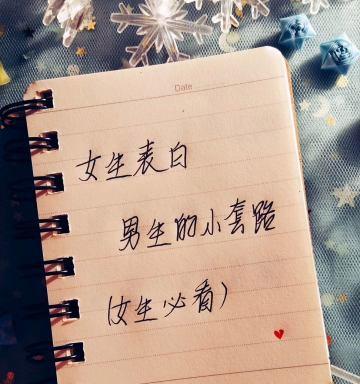 Date
女生表白
男生的小套路
(女生必看)